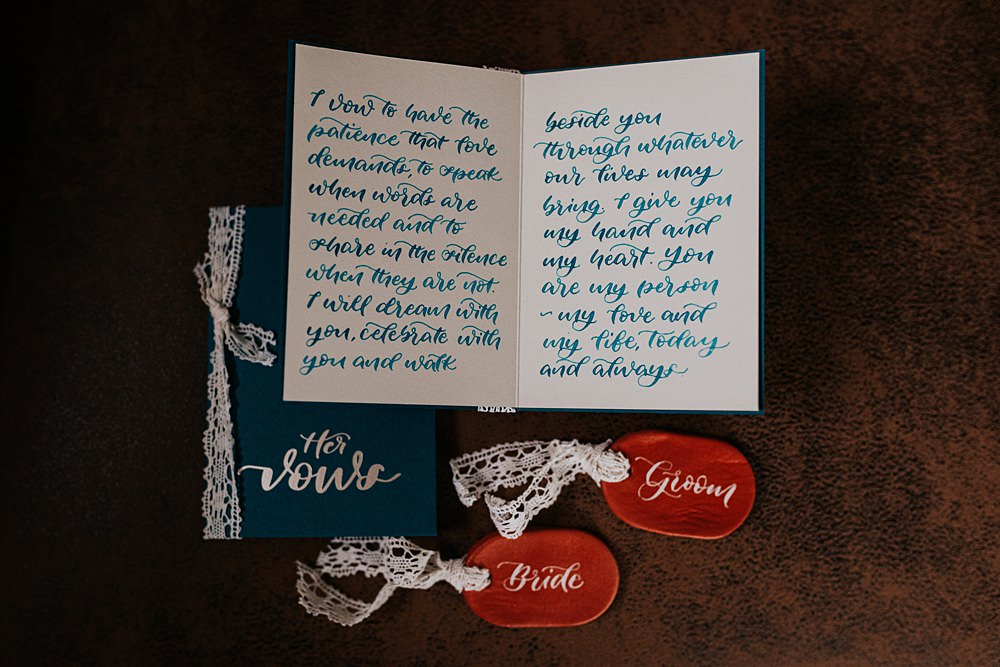 I vow to have the
patience that love
demands, to speak
when words are
needed and to
share in the silence
when they are not.
I will dream with
you, celebrate with
you and walk
beside you
through whatever
our lives may
bring. I give you
my hand and
my heart. You
are my person
~ my love and
my life, today
and always
Her
vows
Groom
Bride